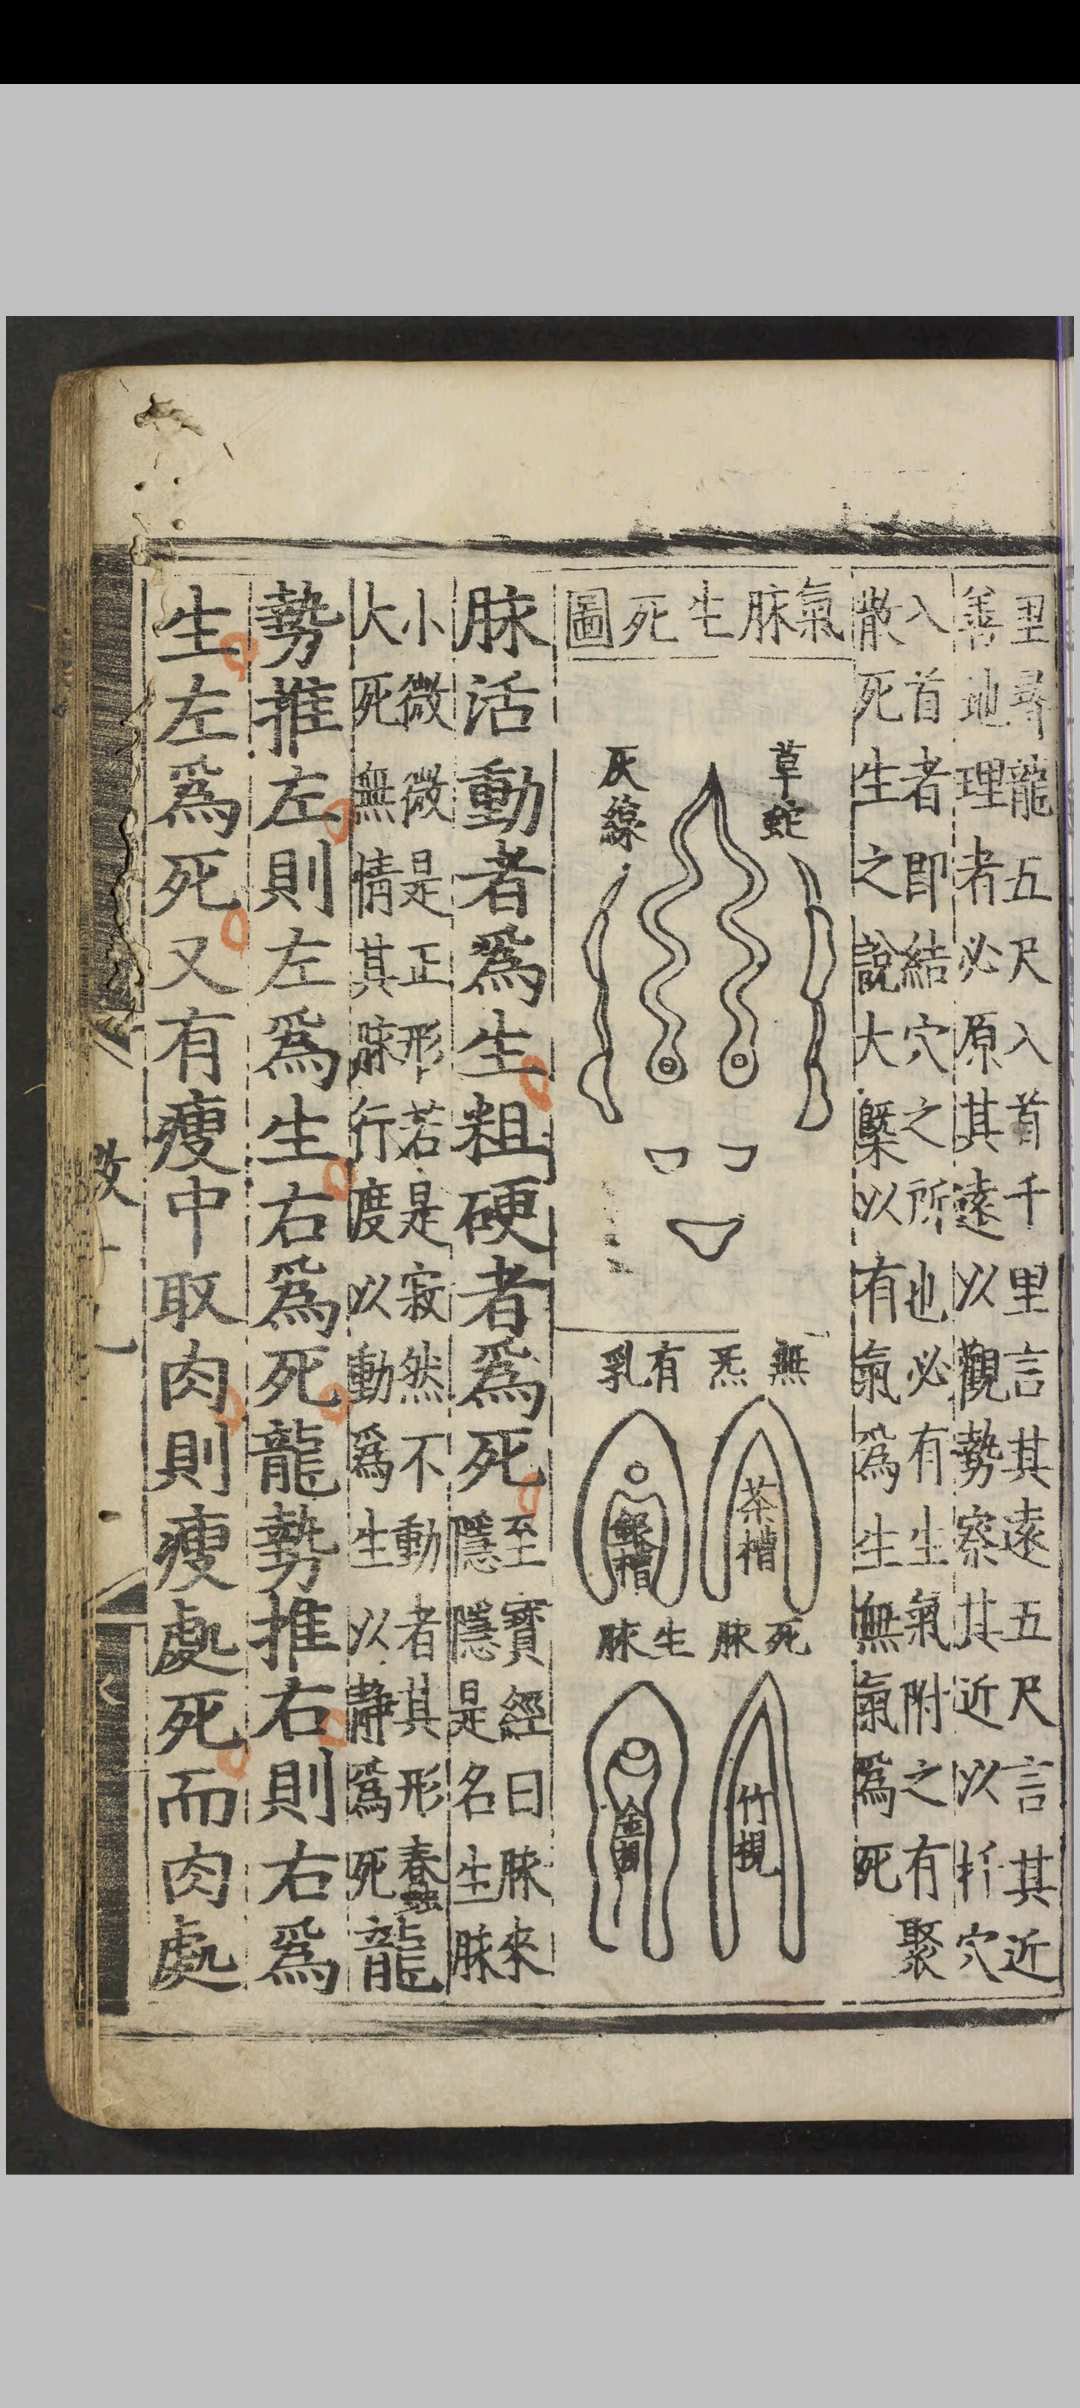 里尋龍五尺入首千里言其遠五尺言其近
善地理者必原其遠以觀勢察其近以扦穴
入首者即結穴之所也必有生氣附之有聚
散死生之說大槩以有氣為生無氣為死
氣脉生死圖
草蛇
灰線
無炁
有乳
茶槽
銀槽
死脉
生脉
竹視
脉活動者為生粗硬者為死
至寳經曰脉來
隱隱是名生脉
小微微是正形若是寂然不動者其形蠢
大死無情其脉行度以動為生以靜為死
龍
勢推左則左為生右為死龍勢推右則右為
生左為死又有瘦中取肉則瘦處死而肉處